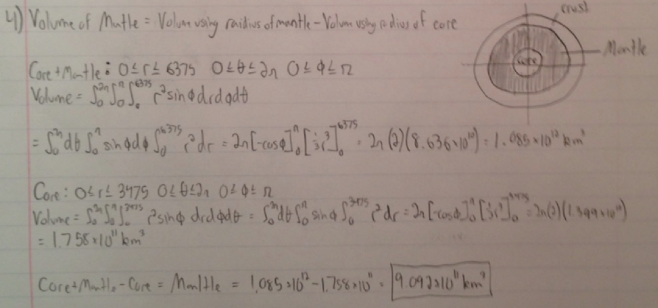 4) Volume of Mantle = Volume using raidius of mantle - Volume using radius of core
crust
Mantle
core
Core + Mantle: 0≤r≤6375 0≤θ≤2π 0≤φ≤π
Volume = ∫₀^2π ∫₀^π ∫₀^6375 r² sinφ dr dφ dθ
= ∫₀^2π dθ ∫₀^π sinφ dφ ∫₀^6375 r² dr = 2π [-cosφ]₀^π [⅓r³]₀^6375 = 2π (2)(8.636×10¹⁰) = 1.085×10¹² km³
Core: 0≤r≤3475 0≤θ≤2π 0≤φ≤π
Volume = ∫₀^2π ∫₀^π ∫₀^3475 r² sinφ dr dφ dθ = ∫₀^2π dθ ∫₀^π sinφ ∫₀^3475 r² dr = 2π [-cosφ]₀^π [⅓r³]₀^3475 = 2π(2)(1.399×10¹⁰)
= 1.758×10¹¹ km³
Core + Mantle - Core = Mantle = 1.085×10¹² - 1.758×10¹¹ = 9.092×10¹¹ km³